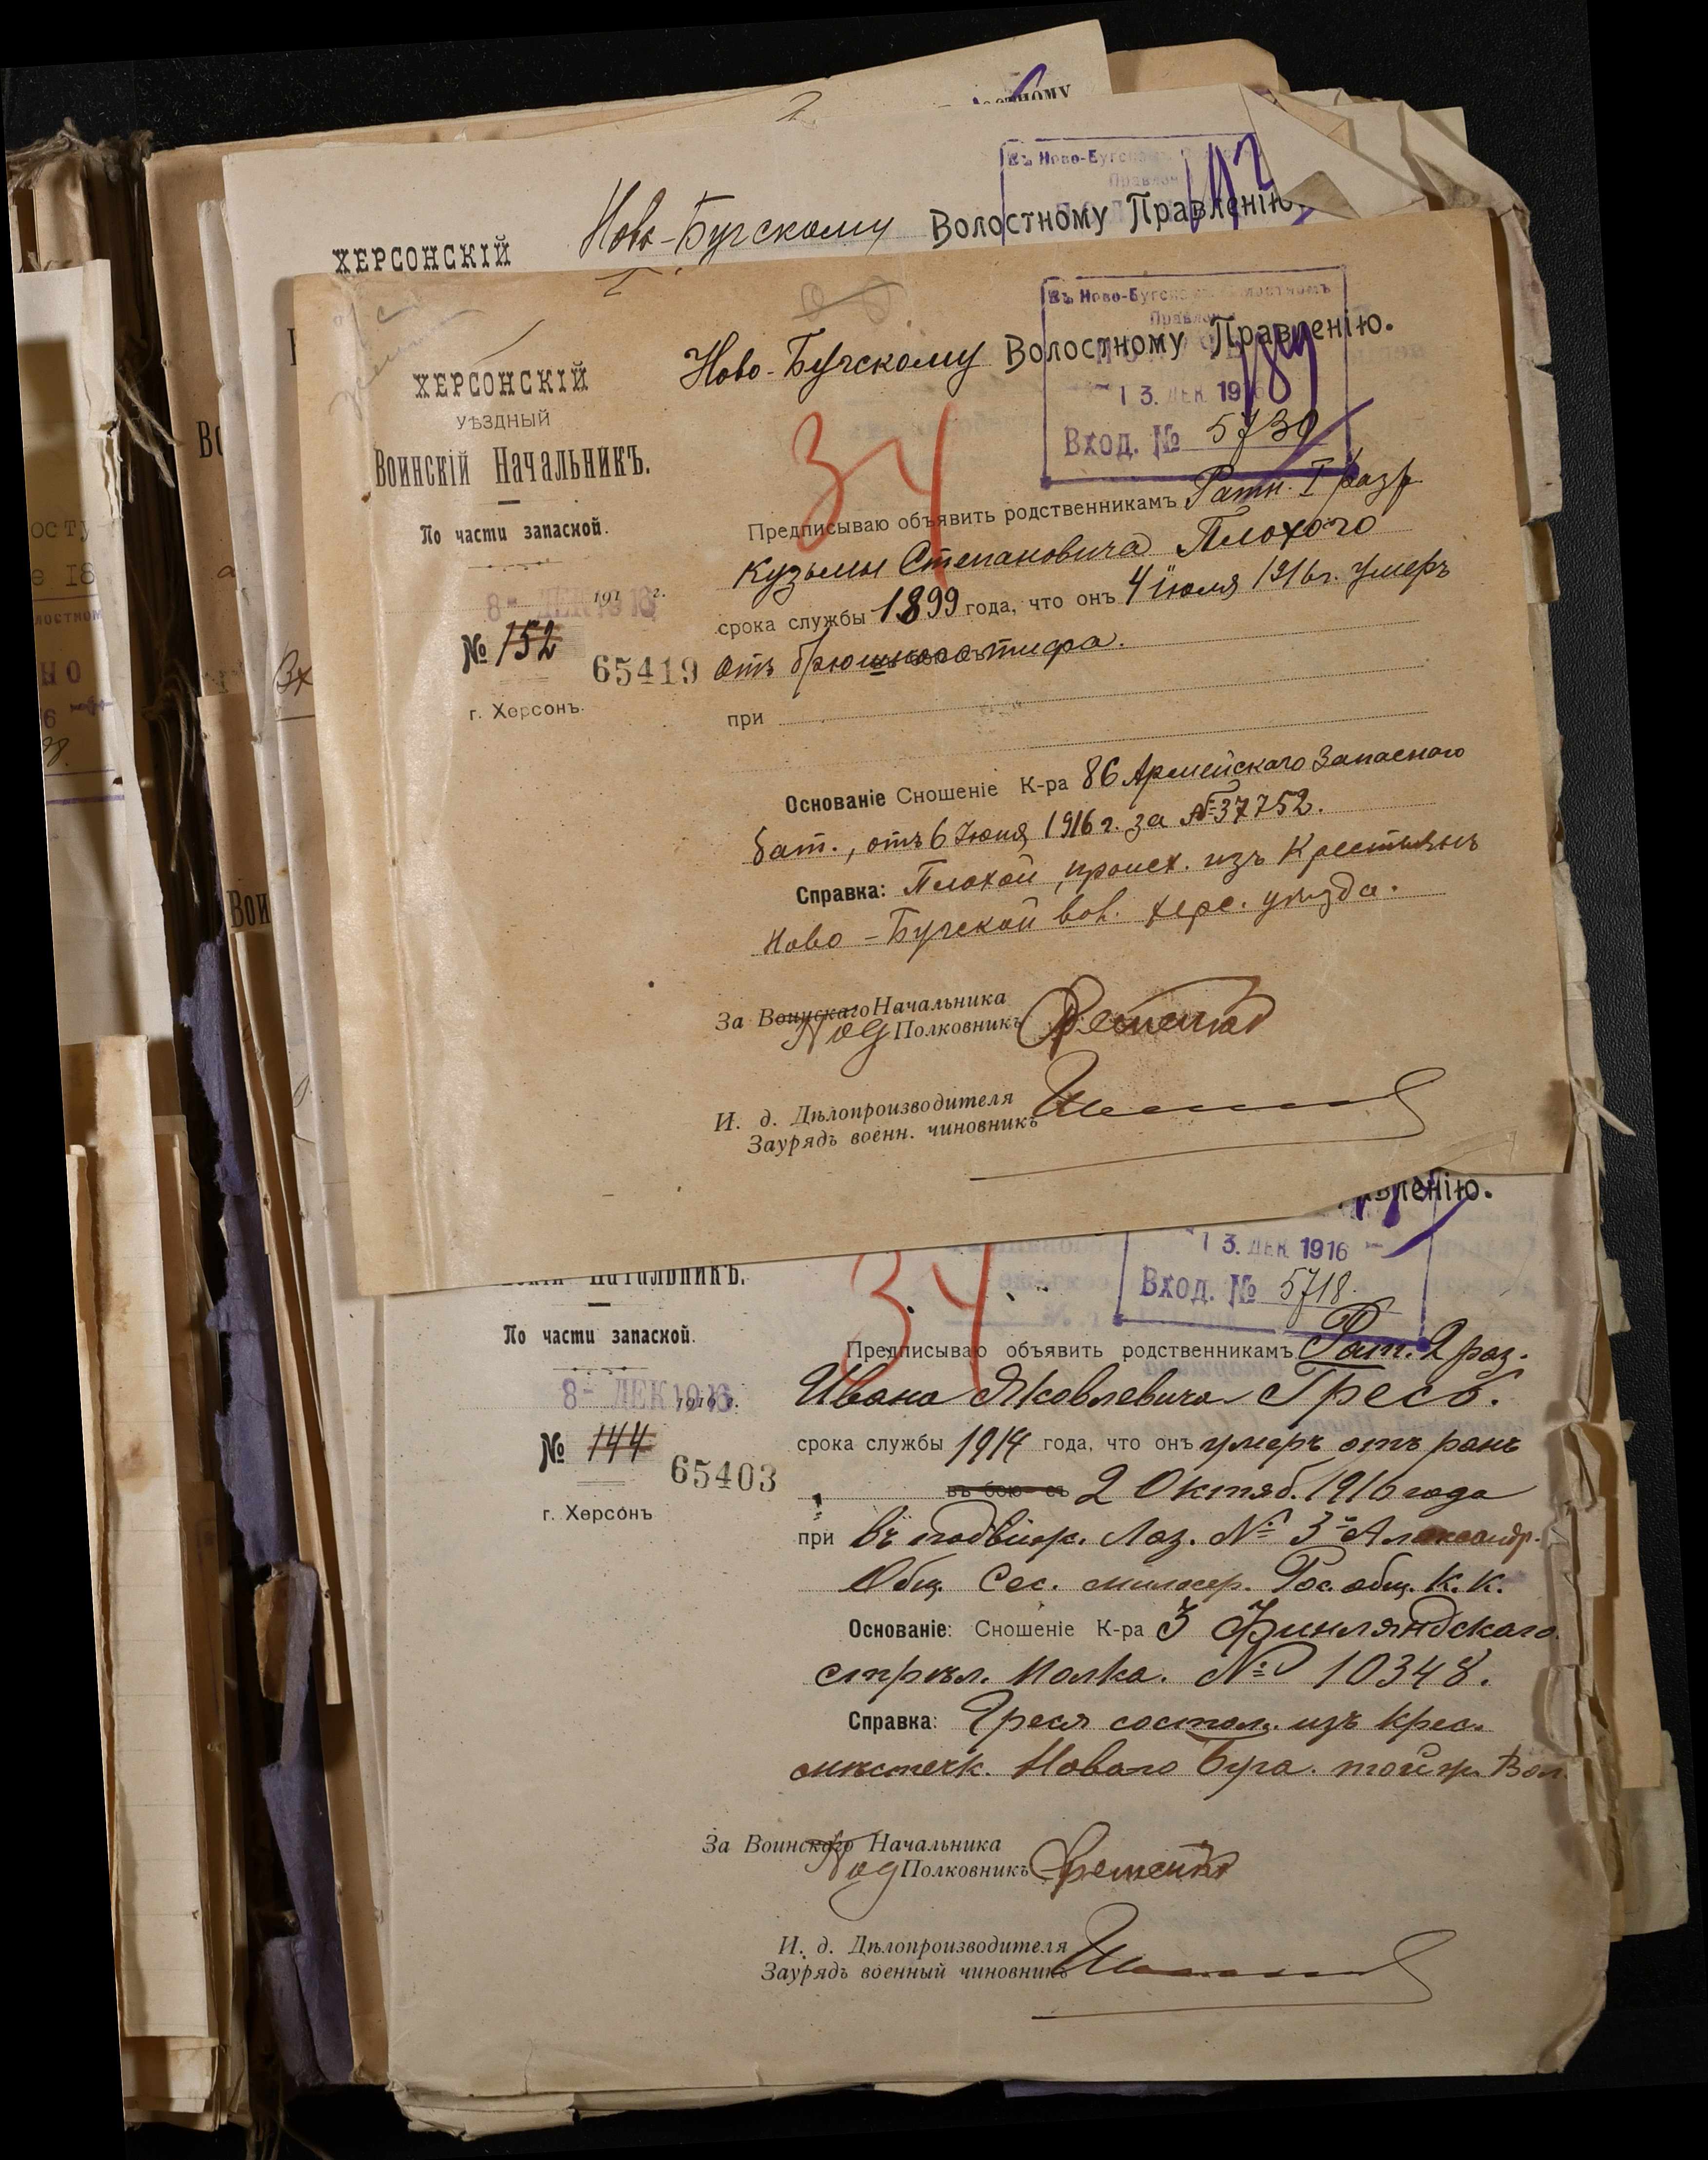 Ново-Бугскому Волостному Правленію.
ХЕРСОНСКІЙ
Въ Ново-Бугскомъ Волостномъ
Правленіи
Ново-Бугскому Волостному Правленію.
13. ДЕК 1916
Вход. № 5730
ХЕРСОНСКІЙ
УѢЗДНЫЙ
Воинскій Начальникъ.
По части запаской.
8- ДЕК 1916
191 г.
№ 152
65419
г. Херсонъ.
34
Предписываю объявить родственникамъ Ратн. I разр.
Кузьмы Степановича Плохого
срока службы 1899 года, что онъ 4 іюля 1916г. умеръ
отъ брюшного тифа.
при
Основаніе Сношеніе К-ра 86 Армейскаго Запасного
бат., отъ 6 Іюня 1916 г. за №37752.
Справка: Плохой, происх. изъ Крестьянъ
Ново-Бугской вол. херс. уѣзда.
За Воинскаго Начальника
Под Полковникъ
И. д. Дѣлопроизводителя
Заурядъ военн. чиновникъ
13. ДЕК 1916
Вход. № 5718.
По части запаской.
8- ДЕК 1916
1916 г.
№ 144
65403
г. Херсонъ
34
Предписываю объявить родственникамъ Рат. 2 раз.
Ивана Яковлевича Гресь.
срока службы 1914 года, что онъ умеръ отъ ранъ
въ бою съ 2 Октяб. 1916 года
при въ подвиж. Лаз. № 3й Александр.
Общ. Сес. милосер. Рос. общ. К. К.
Основаніе: Сношеніе К-ра 3 Финляндскаго
стрѣл. полка. № 10348.
Справка: Греся состол. изъ крес.
мѣстечк. Новаго Буга. той ж. Вол.
За Воинскаго Начальника
Под Полковникъ
И. д. Дѣлопроизводителя
Заурядъ военный чиновникъ